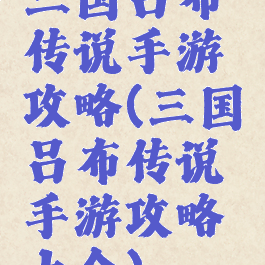 三国吕布
传说手游
攻略(三国
吕布传说
手游攻略
大全)